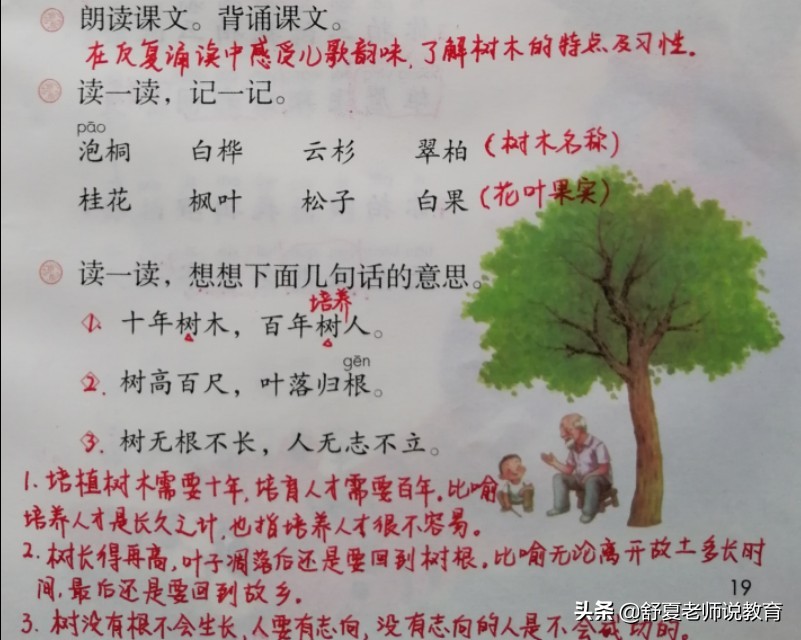 朗读课文。背诵课文。
在反复诵读中感受儿歌韵味,了解树木的特点及习性。
读一读,记一记。
pāo
泡桐 白桦 云杉 翠柏(树木名称)
桂花 枫叶 松子 白果(花叶果实)
读一读,想想下面几句话的意思。
培养
1. 十年树木,百年树人。
gēn
2. 树高百尺,叶落归根。
3. 树无根不长,人无志不立。
1. 培植树木需要十年,培育人才需要百年。比喻
培养人才是长久之计,也指培养人才很不容易。
2. 树长得再高,叶子凋落后还是要回到树根。比喻无论离开故土多长时
间,最后还是要回到故乡。
19
3. 树没有根不会生长,人要有志向,没有志向的人是不会成功的
头条 @舒夏老师说教育